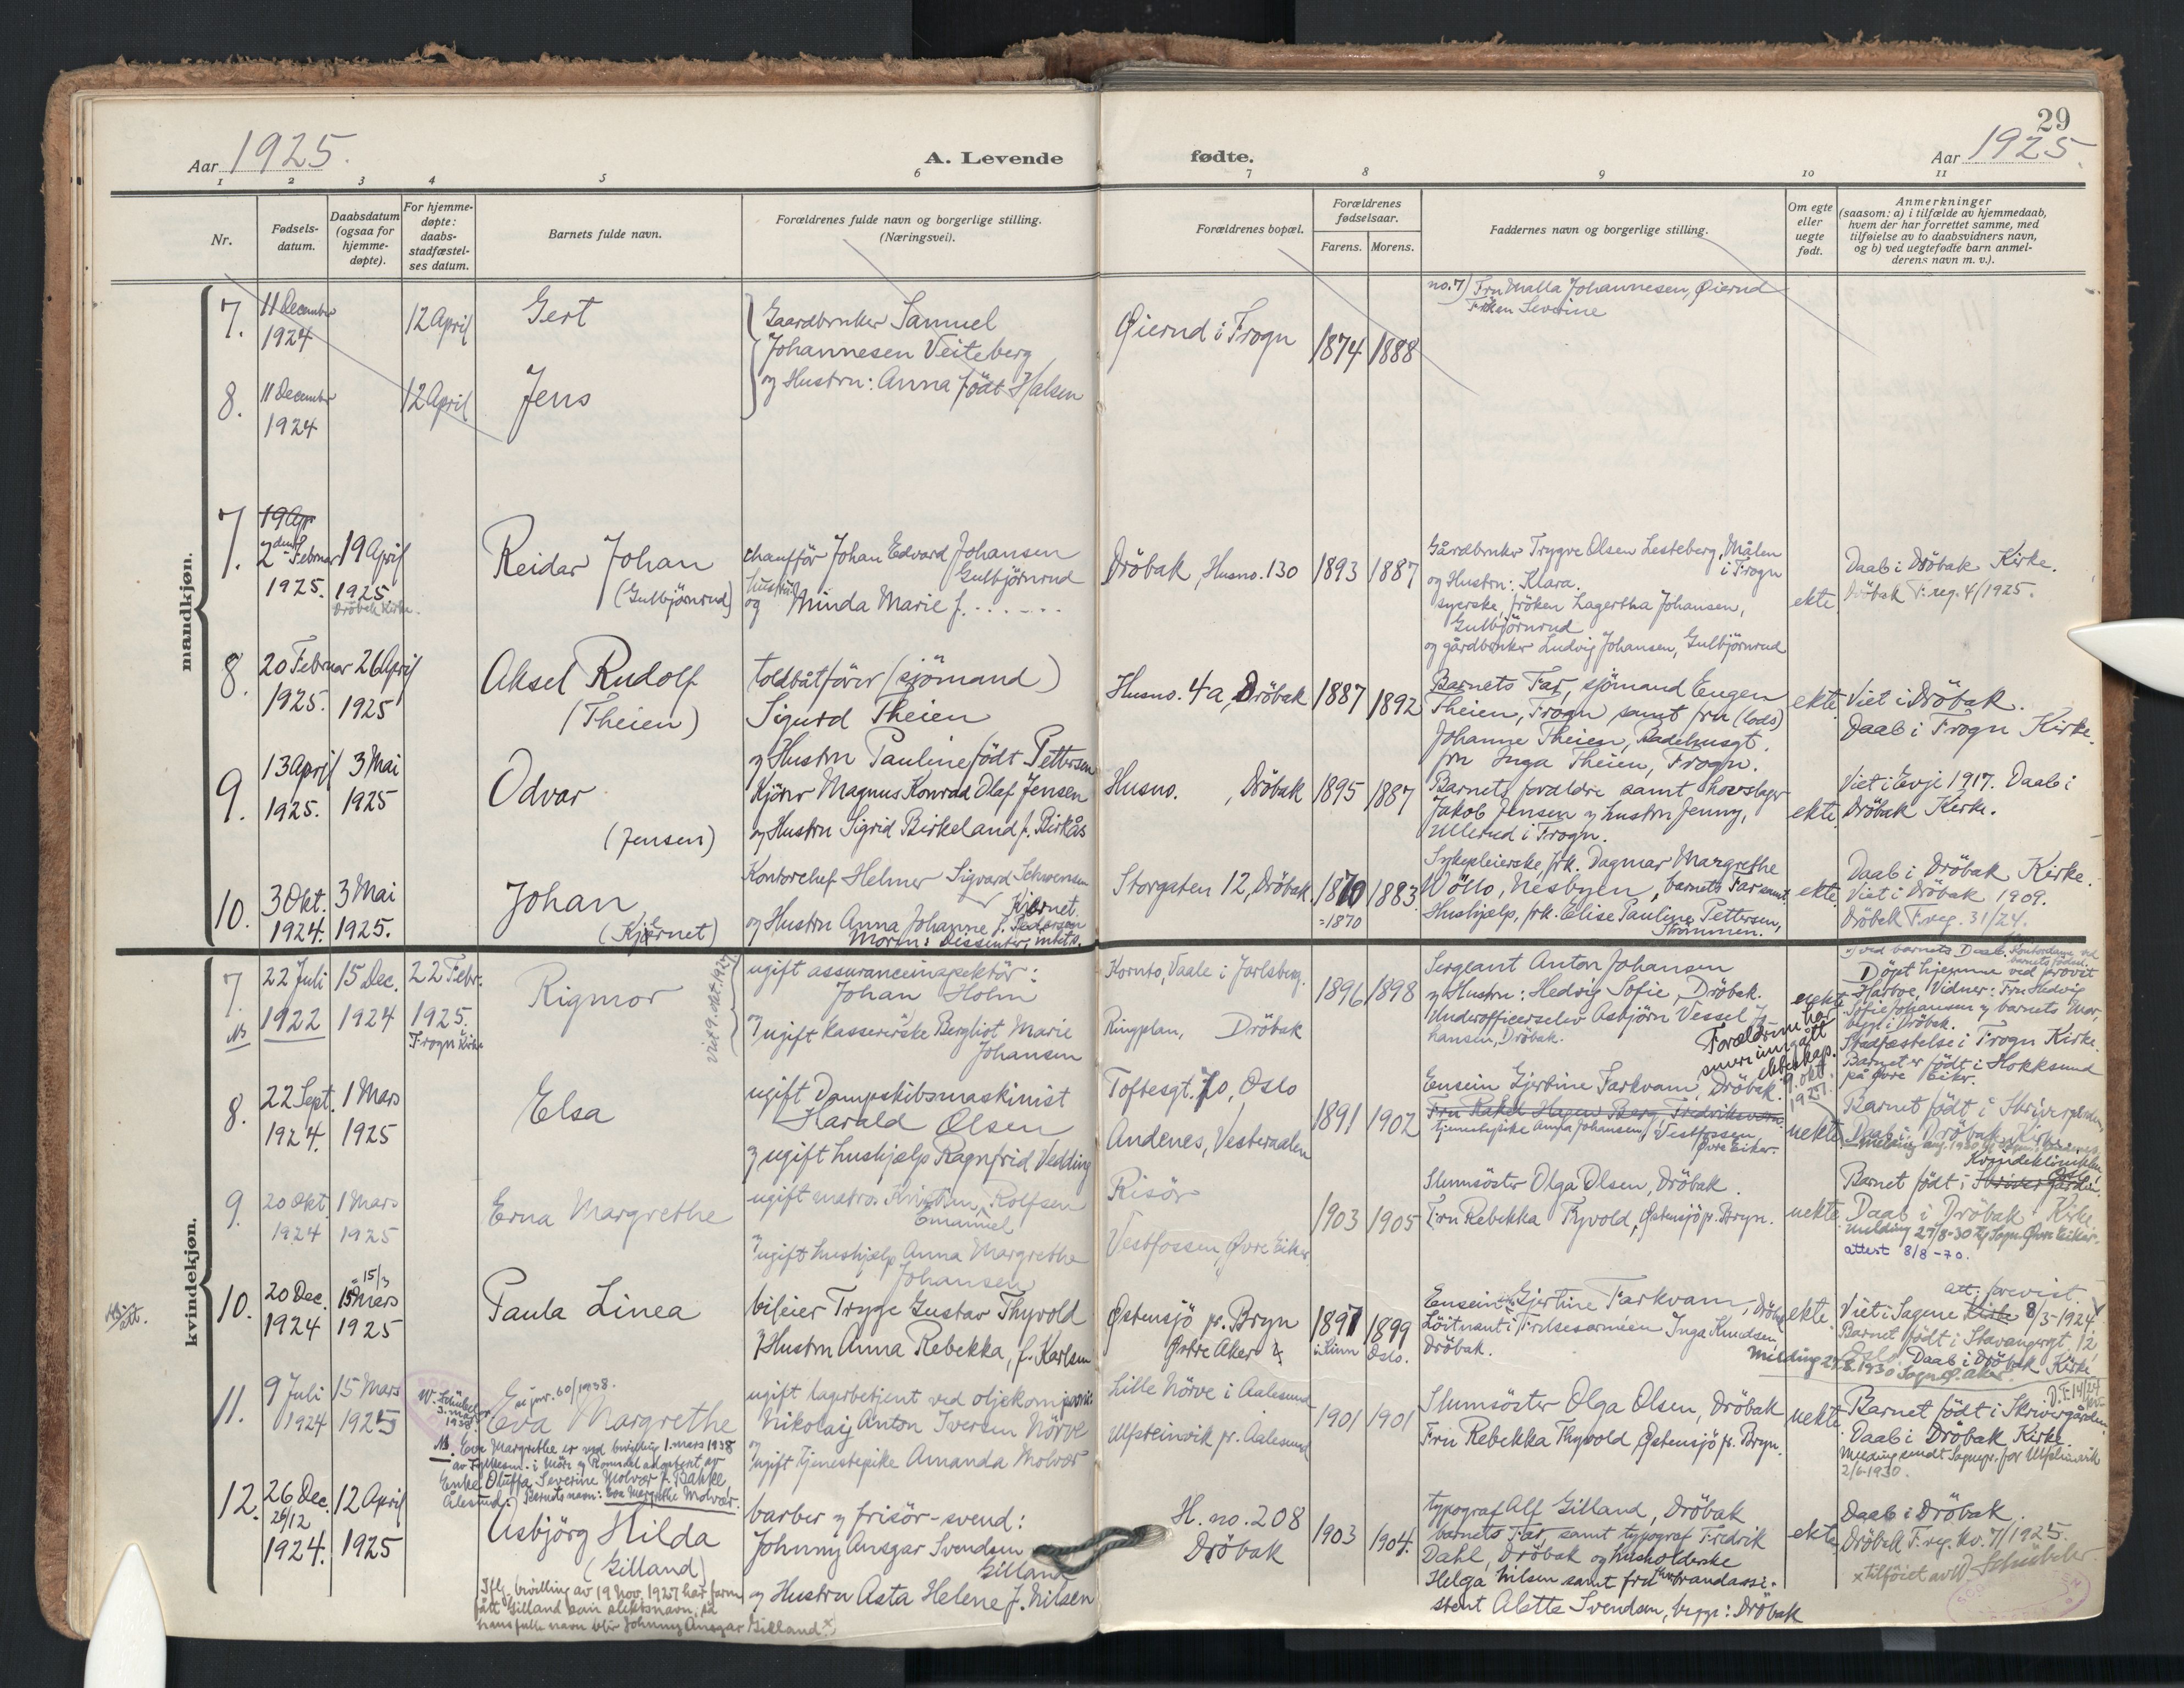 29
Aar 1925.
A. Levende
fødte.
Aar 1925.
1 2 3 4 5 6 7 8 9 10 11
Nr.
Fødsels-
datum.
Daabsdatum
(ogsaa for
hjemme-
døpte).
For hjemme-
døpte:
daabs-
stadfæstel-
ses datum.
Barnets fulde navn.
Forældrenes fulde navn og borgerlige stilling.
(Næringsvei).
Forældrenes bopæl.
Forældrenes
fødselsaar.
Farens. Morens.
Faddernes navn og borgerlige stilling.
Om egte
eller
uegte
født.
Anmerkninger
(saasom: a) i tilfælde av hjemmedaab,
hvem der har forrettet samme, med
tilføielse av to daabsvidners navn,
og b) ved uegtefødte barn anmel-
derens navn m. v.).
mandkjøn.
7.
11 December
1924
12 April
Gert
Gaardbruker Samuel
Johannesen Veiteberg
og Hustru: Anna født Halsen
Øierud i Frogn
1874
1888
no. 7) Fru Malla Johannesen, Øierud
Frøken Severine
8.
11 December
1924
12 April
Jens
7.
19 Apr
2 den Februar
1925.
19 April
1925
Dröbak Kirke.
Reidar Johan
(Gulbjörnrud)
chaufför Johan Edvard Johansen
Gulbjörnrud
hustru
og Minda Marie f. . . . . . .
Dröbak, Husno. 130
1893
1887
Gårdbruker Trygve Olsen Lesteberg, Målen
i Frogn
og Hustru: Klara.
syerske, fröken Lagertha Johansen,
Gulbjörnrud
og gårdbruker Ludvig Johansen, Gulbjörnrud
ekte
Daab i Dröbak Kirke.
Dröbak F. reg. 4/1925.
8.
20 Februar
1925.
26 April
1925
Aksel Rudolf
(Theien)
toldbåtförer (sjömand)
Sigurd Theien
og Hustru Pauline födt Pettersen
Husno. 4a, Dröbak
1887
1892
Barnets Far, sjömand Eugen
Theien, Frogn, samt fru (lods)
Johanne Theien, Badehusgt.
fru Inga Theien, Frogn.
ekte
Viet i Dröbak.
Daab i Frogn Kirke.
9.
13 April
1925.
3 Mai
1925
Odvar
(Jensen)
Kjörer Magnus Konrad Olaf Jensen
og Hustru Sigrid Birkeland f. Birkås
Husno. , Dröbak
1895
1887
Barnets forældre samt hovslager
Jakob Jensen og hustru Jenny,
Ullerud i Frogn.
ekte.
Viet i Evje 1917. Daab i
Dröbak Kirke.
10.
3 Okt.
1924.
3 Mai
1925.
Johan
(Kjærnet)
Kontorchef Helmer Sigvard Schwensen
Kjærnet
og Hustru Anna Johanne f. Pedersen
Moren: dissenter, intets.
Storgaten 12, Dröbak.
1870
=1870
1883.
Sykepleierske, frk. Dagmar Margrethe
Wöllo, Nesbyen, barnets Far samt
Hushjælp, frk. Elise Pauline Pettersen,
Strömmen.
ekte.
Daab i Dröbak Kirke.
Viet i Dröbak 1909.
Dröbak F.reg. 31/24.
kvindekjøn.
7.
NB
22 Juli
1922
15 Dec.
1924
22 Febr.
1925.
i
Frogn Kirke
Rigmor
Viet 9. okt. 1927
ugift assuranceinspektör:
Johan Holm
og
ugift kassererske Bergliot Marie
Johansen
Kornbo, Vaale i Jarlsberg.
Ringplan, Dröbak
1896
1898
Sergeant Anton Johansen
og Hustru: Hedvig Sofie, Dröbak.
Underofficerselev Asbjörn Vessel Jo-
hansen, Dröbak.
uekte
Forældrene har
senere inngått
ekteskap.
9. okt.
1927.
Döpt hjemme ved provst
Harboe, Vidner: Fru Hedvig
Sofie Johansen og barnets Mor
begge i Dröbak.
Stadfæstelse i Frogn Kirke.
Barnet er födt i Hokksund
på Øvre Eiker.
8.
22 Sept.
1924.
1 Mars
1925
Elsa
ugift Dampskibsmaskinist
Harald Olsen
og ugift hushjælp Ragnfrid Vedding
Toftesgt. 70, Oslo
Andenes, Vesteraalen
1891
1902
Ensein Gjertine Farkvam, Dröbak.
Fru Rakel Hagen Berg, Fredriksværn.
tjenestepike Anna Johansen, Vestfossen
Øvre Eiker.
uekte
Barnet födt i Skrivergården,
Daab i Dröbak Kirke
9.
20 Okt.
1924
1 Mars
1925
Erna Margrethe
ugift matros Kristian Rolfsen
Emanuel
og ugift hushjælp Anna Margrethe
Johansen
Risör
Vestfossen, Øvre Eiker
1903
1905
Slumsöster Olga Olsen, Dröbak.
Fru Rebekka Thyvold, Østensjö pr. Bryn.
uekte
Kvindeklinikken
Oslo
Barnet födt i Skrivergården
Daab i Dröbak Kirke.
melding 27/8-30 til Sogn. Øvre Eiker.
attest 8/8-70.
NB/att.
10.
20 Dec.
1924
15/3
15 Mars
1925
Paula Linea
bileier Trygve Gustav Thyvold
og Hustru Anna Rebekka, f. Karlsen
Østensjö pr. Bryn
Østre Aker
1897
i Linn
1899
Oslo.
Ensein Gjertine Farkvam, Dröbak
Löitnant i Frelsesarméen Inga Knudsen,
Dröbak.
ekte.
att. forevist.
Viet i Sagene Kirke 8/3-1924
Barnet födt i Stavangergt. 12,
Oslo. Daab i Dröbak Kirke
Melding 27.8.1930 Sogn. Ø. Aker.
11.
9 Juli
1924
15 Mars
1925
W. Schübeler
3. mai
1938.
Eva Margrethe
NB. Eva Margrethe er ved bevilling 1. mars 1938
av Fylkesm. i Möre og Romsdal adoptert av
Enke Oluffa Severine Molvær f. Bakke,
Ålesund. Barnets navn: Eva Margrethe Molvær.
ugift lagerbetjent ved oljekompani:
Nikolaij Anton Iversen Nörve
og
ugift tjenestepike Amanda Molvær
Lille Nörve i Aalesund
Ulfsteinvik pr. Aalesund
1901
1901
Slumsöster Olga Olsen, Dröbak
Fru Rebekka Thyvold, Østensjö pr. Bryn.
uekte
D.F. 14/24
Barnet födt i Skrivergården.
Daab i Dröbak Kirke
Melding sendt Sognepr. for Ulfsteinvik
2/6-1930.
12.
26 Dec.
26/12
1924.
12 April
1925
Asbjörg Hilda
(Gilland)
Iflg. bevilling av 19 Nov. 1927 har faren
fått Gilland som slektsnavn, så
hans fulle navn blir Johnny Ansgar Gilland. x)
barber og frisör-svend:
Johnny Ansgar Svendsen
Gilland
og Hustru Asta Helene f. Nilsen
H. no. 208
Dröbak
1903
1904.
typograf Alf Gilland, Dröbak
barnets Far, samt typograf Fredrik
Dahl, Dröbak og husholderske
Helga Nilsen samt fru brandassi-
stent Aletta Svendsen, begge: Dröbak
ekte
Daab i Dröbak.
Dröbak F. reg. No. 7/1925.
x tilföiet av W. Schübeler